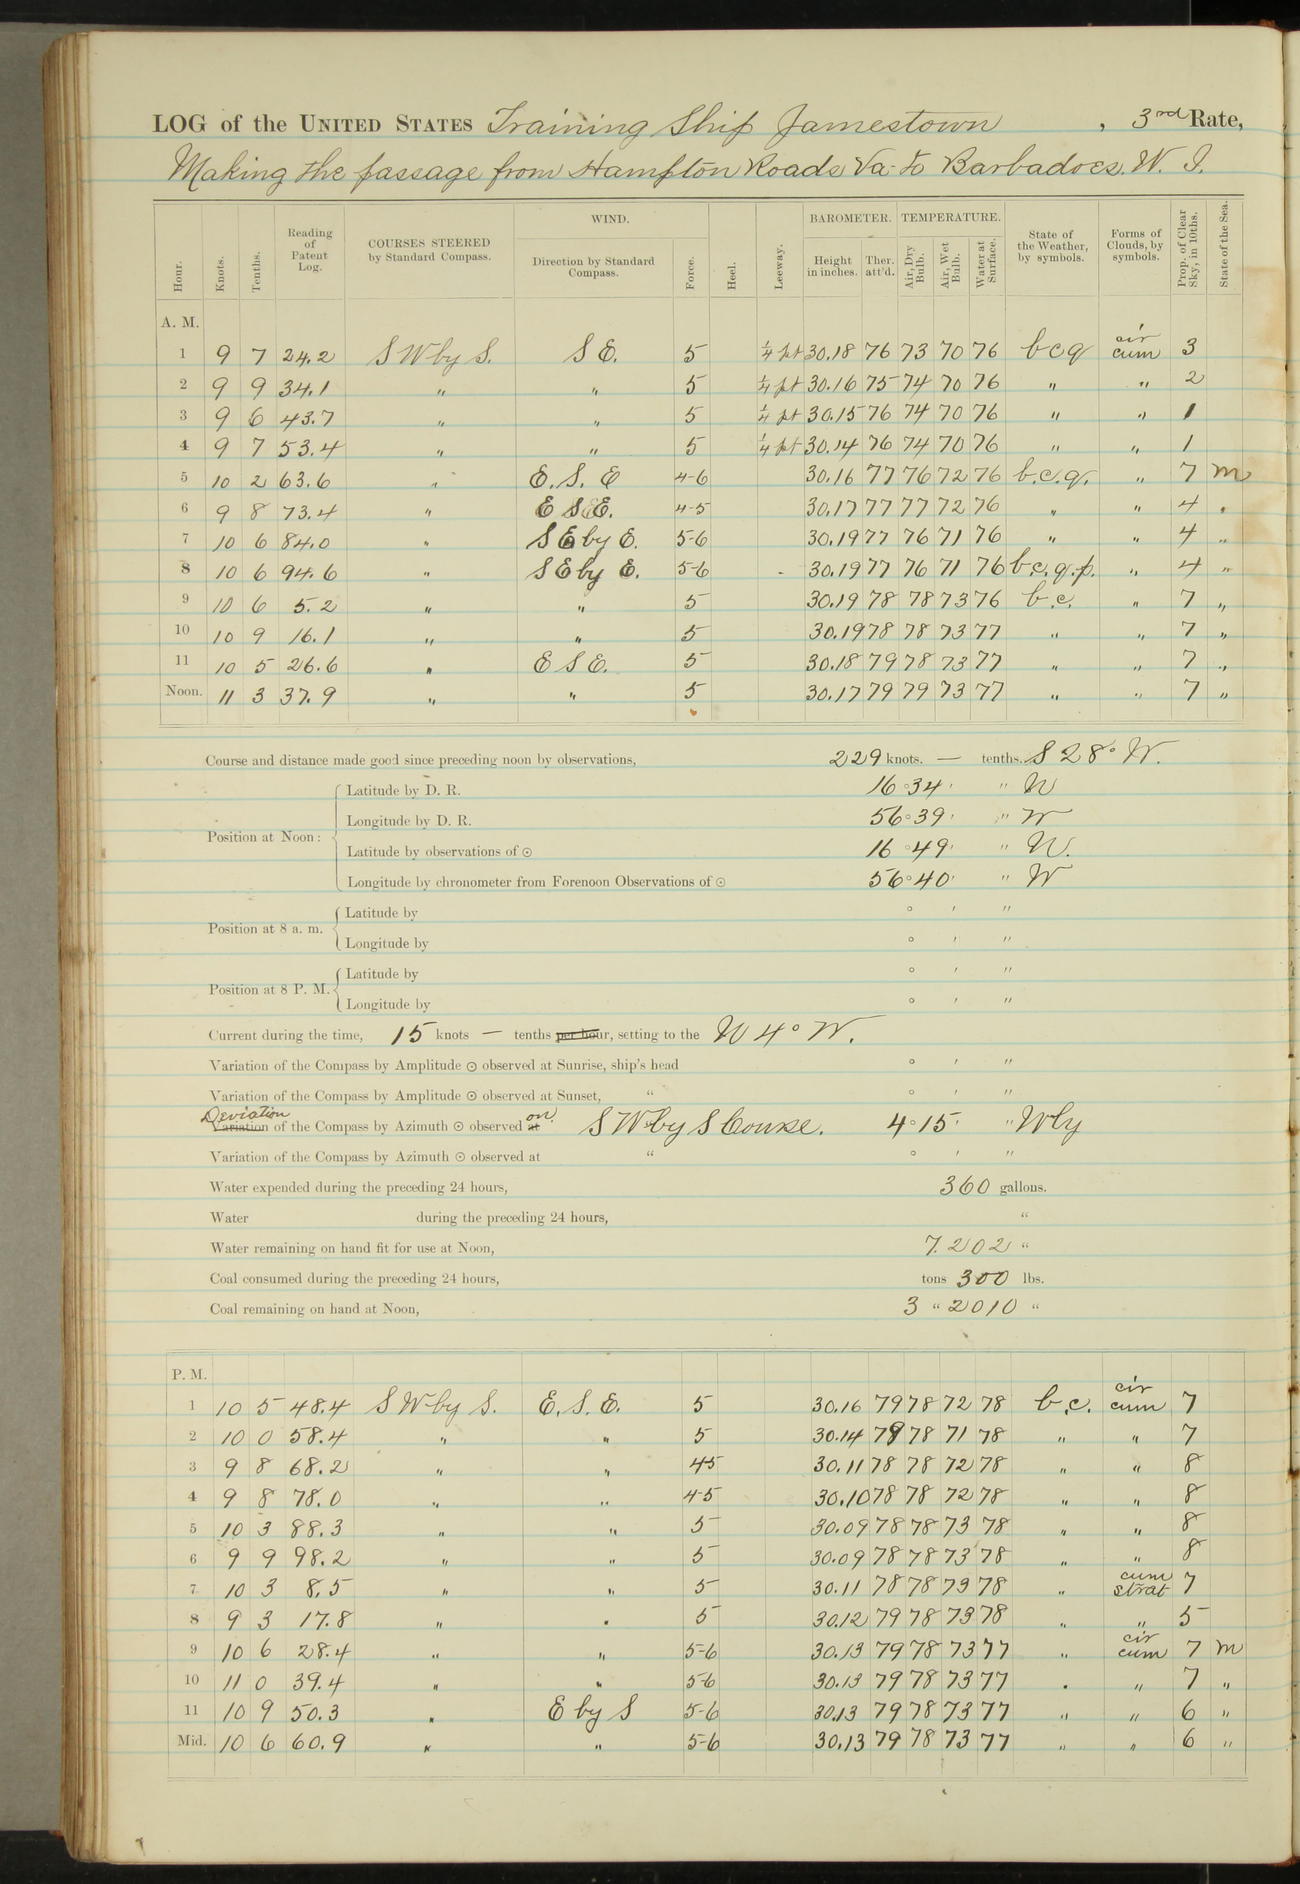 LOG of the UNITED STATES Training Ship Jamestown, 3rd Rate,
Making the passage from Hampton Roads Va. to Barbadoes. W. I.
Hour. Knots. Tenths. Reading of Patent Log. COURSES STEERED by Standard Compass. WIND. Direction by Standard Compass. Force. Heel. Leeway. BAROMETER. Height in inches. Ther. att'd. TEMPERATURE. Air, Dry Bulb. Air, Wet Bulb. Water at Surface. State of the Weather, by symbols. Forms of Clouds, by symbols. Prop. of Clear Sky, in 10ths. State of the Sea.
A. M.
1 9 7 24.2 S W by S. S E. 5 1/4 pt 30.18 76 73 70 76 b c q cir cum 3
2 9 9 34.1 " " 5 1/4 pt 30.16 75 74 70 76 " " 2
3 9 6 43.7 " " 5 1/4 pt 30.15 76 74 70 76 " " 1
4 9 7 53.4 " " 5 1/4 pt 30.14 76 74 70 76 " " 1
5 10 2 63.6 " E. S. E 4-6 30.16 77 76 72 76 b.c.q. " 7 m
6 9 8 73.4 " E S E. 4-5 30.17 77 77 72 76 " " 4 "
7 10 6 84.0 " S E by E. 5-6 30.19 77 76 71 76 " " 4 "
8 10 6 94.6 " S E by E. 5-6 30.19 77 76 71 76 b.c.q.p. " 4 "
9 10 6 5.2 " " 5 30.19 78 78 73 76 b.c. " 7 "
10 10 9 16.1 " " 5 30.19 78 78 73 77 " " 7 "
11 10 5 26.6 " E S E. 5 30.18 79 78 73 77 " " 7 "
Noon. 11 3 37.9 " " 5 30.17 79 79 73 77 " " 7 "
Course and distance made good since preceding noon by observations, 229 knots. — tenths. S 28° W.
Position at Noon:
Latitude by D. R. 16° 34' " N
Longitude by D. R. 56° 39' " W
Latitude by observations of ☉ 16° 49' " N.
Longitude by chronometer from Forenoon Observations of ☉ 56° 40' " W
Position at 8 a. m.
Latitude by ° ' "
Longitude by ° ' "
Position at 8 P. M.
Latitude by ° ' "
Longitude by ° ' "
Current during the time, 15 knots — tenths per hour, setting to the N 4° W.
Variation of the Compass by Amplitude ☉ observed at Sunrise, ship's head ° ' "
Variation of the Compass by Amplitude ☉ observed at Sunset, " ° ' "
Deviation on
Variation of the Compass by Azimuth ☉ observed at S W by S Course. 4° 15' " Wly
Variation of the Compass by Azimuth ☉ observed at " ° ' "
Water expended during the preceding 24 hours, 360 gallons.
Water during the preceding 24 hours, "
Water remaining on hand fit for use at Noon, 7.202 "
Coal consumed during the preceding 24 hours, tons 300 lbs.
Coal remaining on hand at Noon, 3 " 2010 "
P. M.
1 10 5 48.4 S W by S. E. S. E. 5 30.16 79 78 72 78 b.c. cir cum 7
2 10 0 58.4 " " 5 30.14 79 78 71 78 " " 7
3 9 8 68.2 " " 4-5 30.11 78 78 72 78 " " 8
4 9 8 78.0 " " 4-5 30.10 78 78 72 78 " " 8
5 10 3 88.3 " " 5 30.09 78 78 73 78 " " 8
6 9 9 98.2 " " 5 30.09 78 78 73 78 " " 8
7 10 3 8.5 " " 5 30.11 78 78 73 78 " cum strat 7
8 9 3 17.8 " " 5 30.12 79 78 73 78 " " 5
9 10 6 28.4 " " 5-6 30.13 79 78 73 77 " cir cum 7 m
10 11 0 39.4 " " 5-6 30.13 79 78 73 77 " " 7 "
11 10 9 50.3 " E by S 5-6 30.13 79 78 73 77 " " 6 "
Mid. 10 6 60.9 " " 5-6 30.13 79 78 73 77 " " 6 "